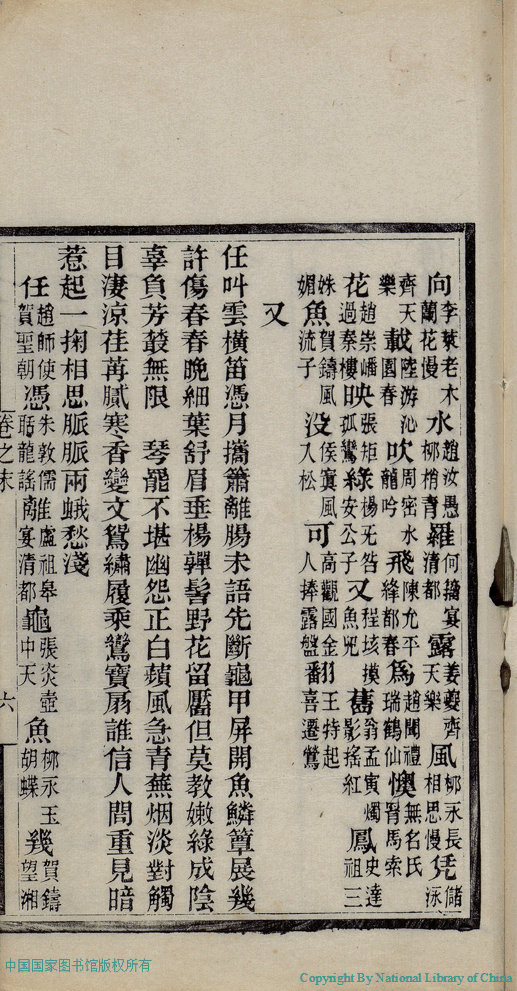 向李萊老木蘭花慢水趙汝愚柳梢青羅何籀宴清都露姜夔齊天樂風柳永長相思慢凭儲泳
齊天樂載陸游沁園春吹周密水龍吟飛陳允平絳都春為趙聞禮瑞鶴仙懊無名氏罥馬索
花趙崇嶓過秦樓映張矩孤鸞綠楊无咎安公子又程垓摸魚兒舊翁孟寅燭影搖紅鳳史達祖三
姝媚魚賀鑄風流子没侯寘風入松可高觀國金人捧露盤翻王特起喜遷鶯
又
任叫雲橫笛憑月攜簫離腸未語先斷龜甲屏開魚鱗簟展幾
許傷春春晚細葉舒眉垂楊嚲髻野花留靨但莫教嫩綠成陰
辜負芳叢無限　琴罷不堪幽怨正白蘋風急青蕪烟淡對觸
目淒涼荏苒膩寒香變文鴛繡履乘鸞寶扇誰信人間重見暗
惹起一掬相思脈脈兩蛾愁淺
任趙師使賀聖朝憑朱敦儒聒龍謠離盧祖皋宴清都龜張炎壺中天魚柳永玉胡蝶幾賀鑄望湘
卷之末
六
中国国家图书馆版权所有
Copyright By National Library of China